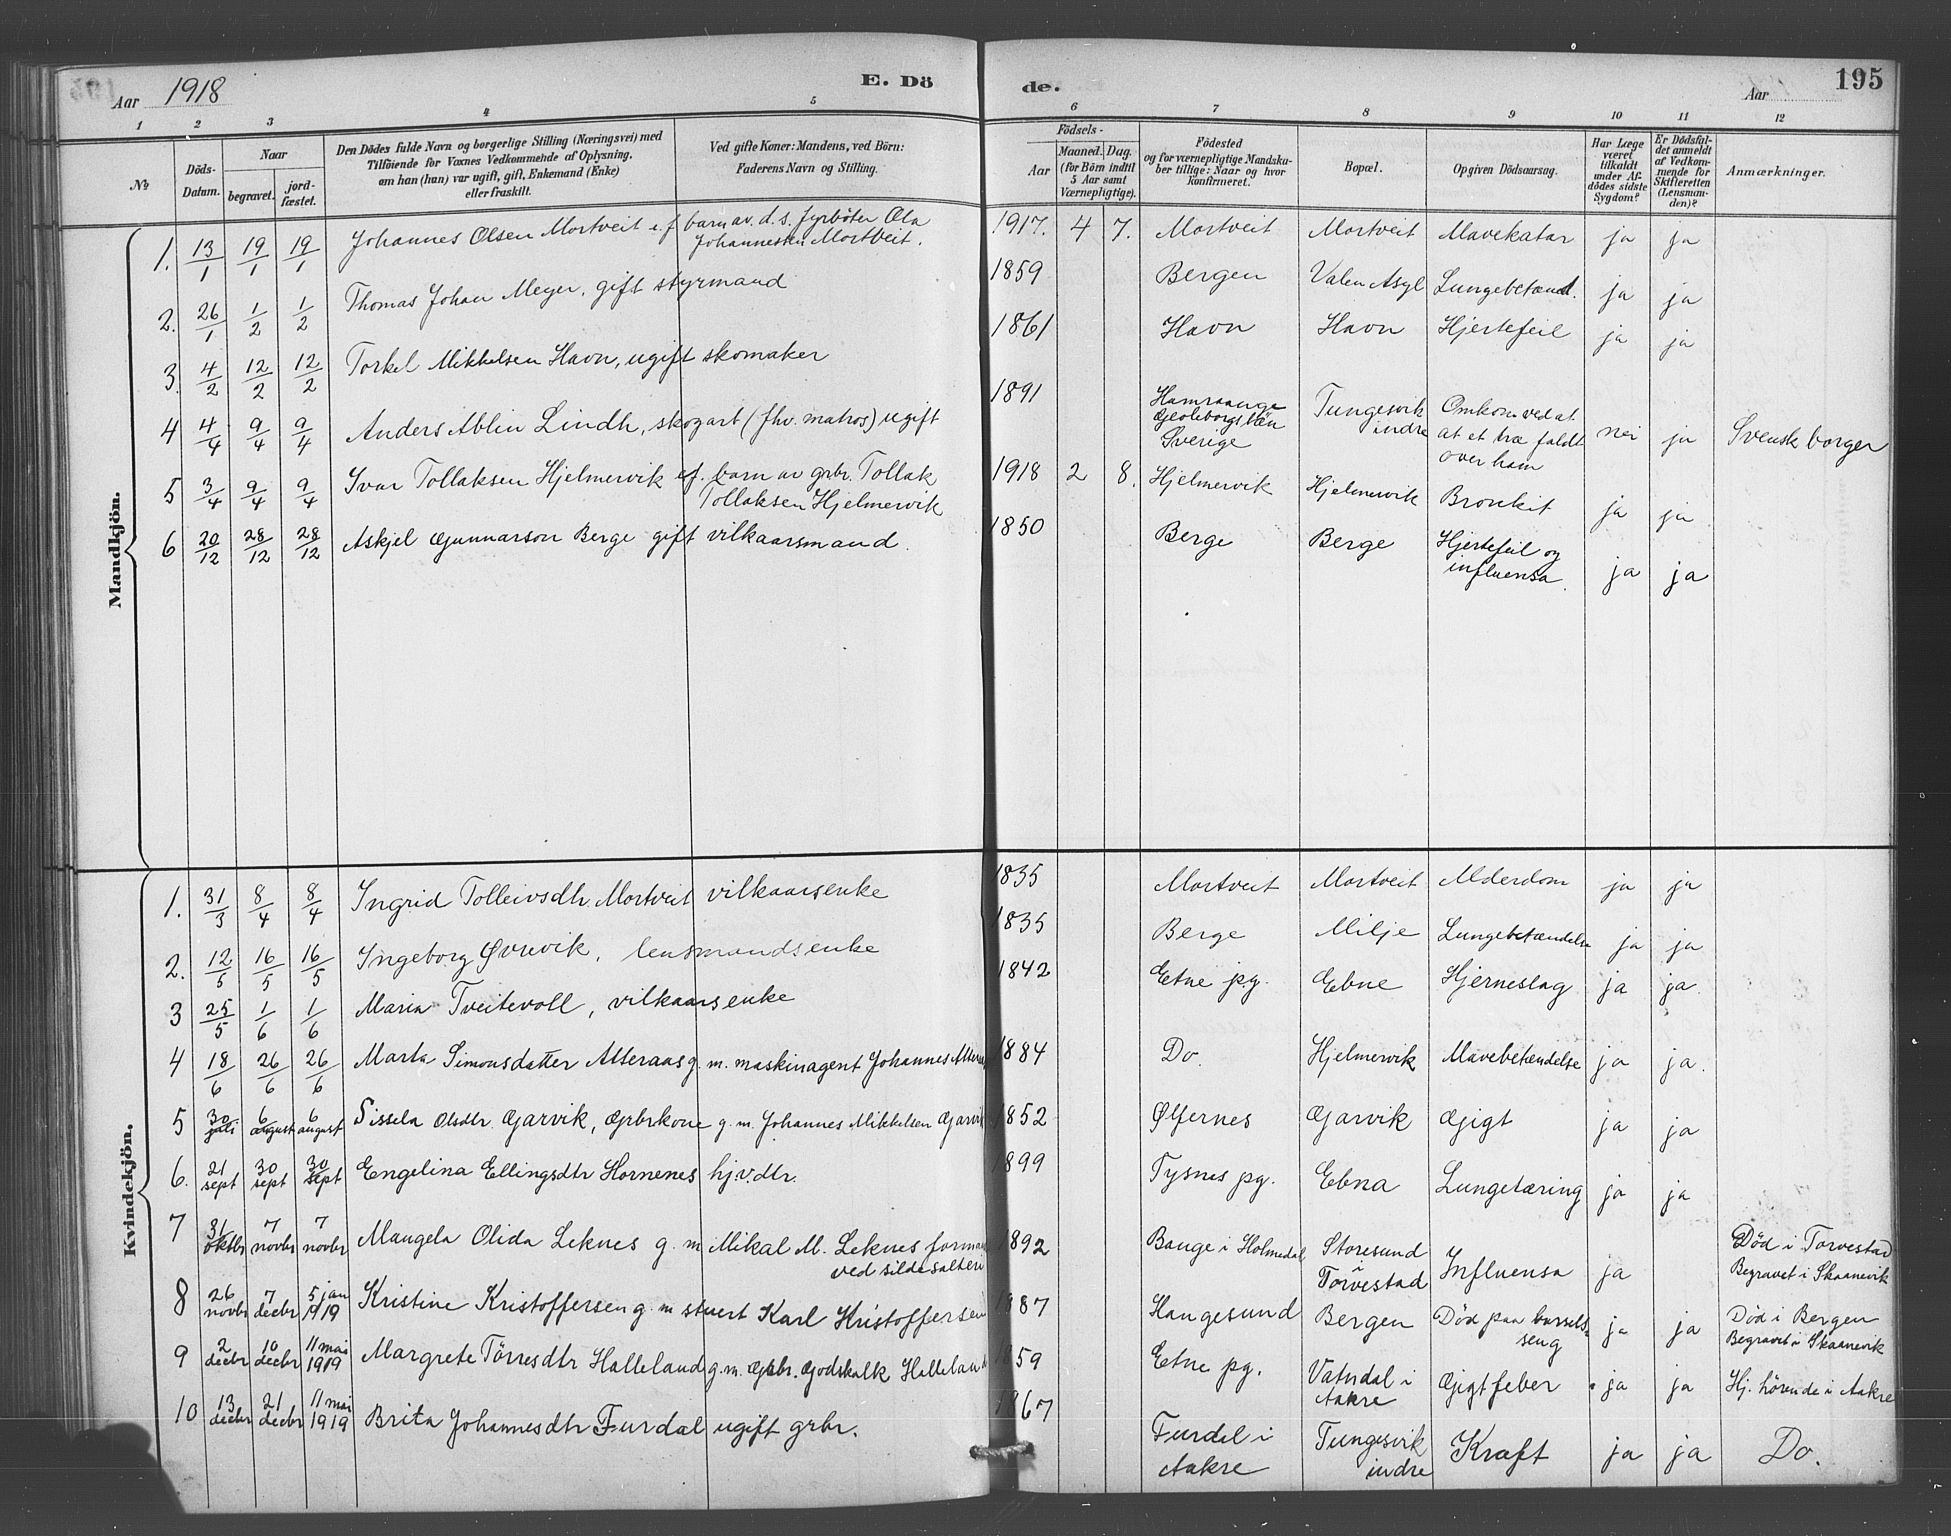 Aar 1918
E. Dö
de.
Aar
195
1 2 3 4 5 6 7 8 9 10 11 12
No
Döds-Datum.
Naar
begravet.
jord-fæstet.
Den Dödes fulde Navn og borgerlige Stilling (Næringsvei) med
Tilföiende for Voxnes Vedkommende af Oplysning,
om han (hun) var ugift, gift, Enkemand (Enke)
eller fraskilt.
Ved gifte Koner: Mandens, ved Börn:
Faderens Navn og Stilling.
Födsels-
Aar
Maaned. Dag.
(for Börn indtil
5 Aar samt
Værnepligtige).
Födested
og for værnepligtige Mandska-
ber tillige: Naar og hvor
konfirmeret.
Bopæl.
Opgiven Dödsaarsag.
Har Læge
været
tilkaldt
under Af-
dödes sidste
Sygdom?
Er Dödsfal-
det anmeldt
af Vedkom-
mende for
Skifteretten
(Lensman-
den)?
Anmærkninger.
Mandkjön.
1. 13/1 19/1 19/1 Johannes Olsen Mortveit e.f barn av d.s. fyrböter Ola
Johannessen Mortveit. 1917. 4 7. Mortveit Mortveit Mavekatar ja ja
2. 26/1 1/2 1/2 Thomas Johan Meyer, gift styrmand 1859 Bergen Valen Asyl Lungebetænd. ja ja
3. 4/2 12/2 12/2 Torkel Mikkelsen Havn, ugift skomaker 1861 Havn Havn Hjertefeil ja ja
4 4/4 9/4 9/4 Anders Ablin Lindh, skogart (fhv. matros) ugift 1891
Sverige
Tungesvik
indre
Omkom ved at
at et træ faldt
over ham
nei ja Svensk borger
5 3/4 9/4 9/4 Ivar Tollaksen Hjelmervik e.f. barn av grbr. Tollak
Tollaksen Hjelmervik 1918 2 8. Hjelmervik Hjelmervik Bronkit ja ja
6 20/12 28/12 28/12 Askjel Gunnarson Berge gift vilkaarsmand. 1850 Berge Berge Hjertefeil og
influensa. ja ja
Kvindekjön.
1. 31/3 8/4 8/4 Ingrid Tolleivsdtr. Mortveit vilkaarsenke 1835 Mortveit Mortveit Alderdom ja ja
2. 12/5 16/5 16/5 Ingeborg Øvrevik, lensmandsenke 1835 Berge Milje Lungebetændelse ja ja
3 25/5 1/6 1/6 Maria Tveitevoll, vilkaarsenke 1842 Etne pg. Ebne Hjerneslag ja ja.
4 18/6 26/6 26/6 Marta Simonsdatter Atteraas g. m. maskinagent Johannes 1884 Do. Hjelmervik Mavebetændelse ja ja.
5 30 juli 6 august 6 august Sissela Olsdtr. Gjarvik, Grbrkone g. m. Johannes Mikkelsen Gjarvik 1852 Ølfernes Gjarvik Gigt ja ja
6. 21 sept 30 sept 30 sept Engelina Ellingsdtr Hornenes hj.v.dtr. 1899 Tysnes pg. Ebna Lungetæring ja ja
7 31 oktbr 7 novbr 7 novbr Mangela Olida Leknes g. m. Mikal M. Leknes
ved sildesalteri 1892 Bauge i Holmedal Storesund
i
Torvestad Influensa ja Død i Torvestad
Begravet i Skaanevik
8 26 novbr 7 decbr 5 jan 1919 Kristine Kristoffersen g. m stuert Karl Kristoffersen 1887 Haugesund Bergen Død paa barsels-
seng ja ja Død i Bergen
Begravet i Skaanevik
9 2 decbr 10 decbr 11 mai 1919 Margrete Törresdtr Halleland g. m. Grbr. Godskalk Halleland 1859 Etne pg. Vatndal i
Aakre Gigtfeber ja ja Hj. hörende i Aakre
10 13 decbr 21 decbr 11 mai 1919 Brita Johannesdtr Furdal ugift grbr. 1867 Furdal i
Aakre Tungesvik
indre Kræft ja ja Do.